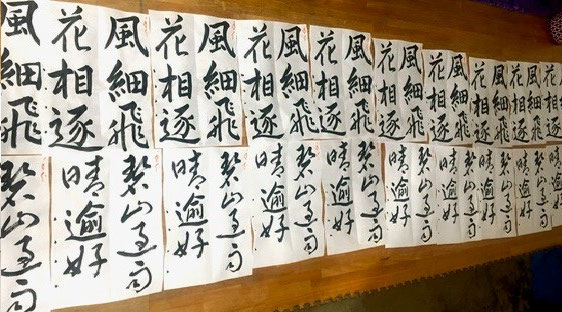 風細飛
花相逐
風細飛
花相逐
風細飛
花相逐
風細飛
花相逐
風細飛
花相逐
風細飛
花相逐
風細飛
花相逐
風細飛
花相逐
風細飛
碧山過雨
晴逾好
碧山過雨
晴逾好
碧山過雨
晴逾好
碧山過雨
晴逾好
碧山過雨
晴逾好
碧山過雨
晴逾好
碧山過雨
晴逾好
碧山過雨